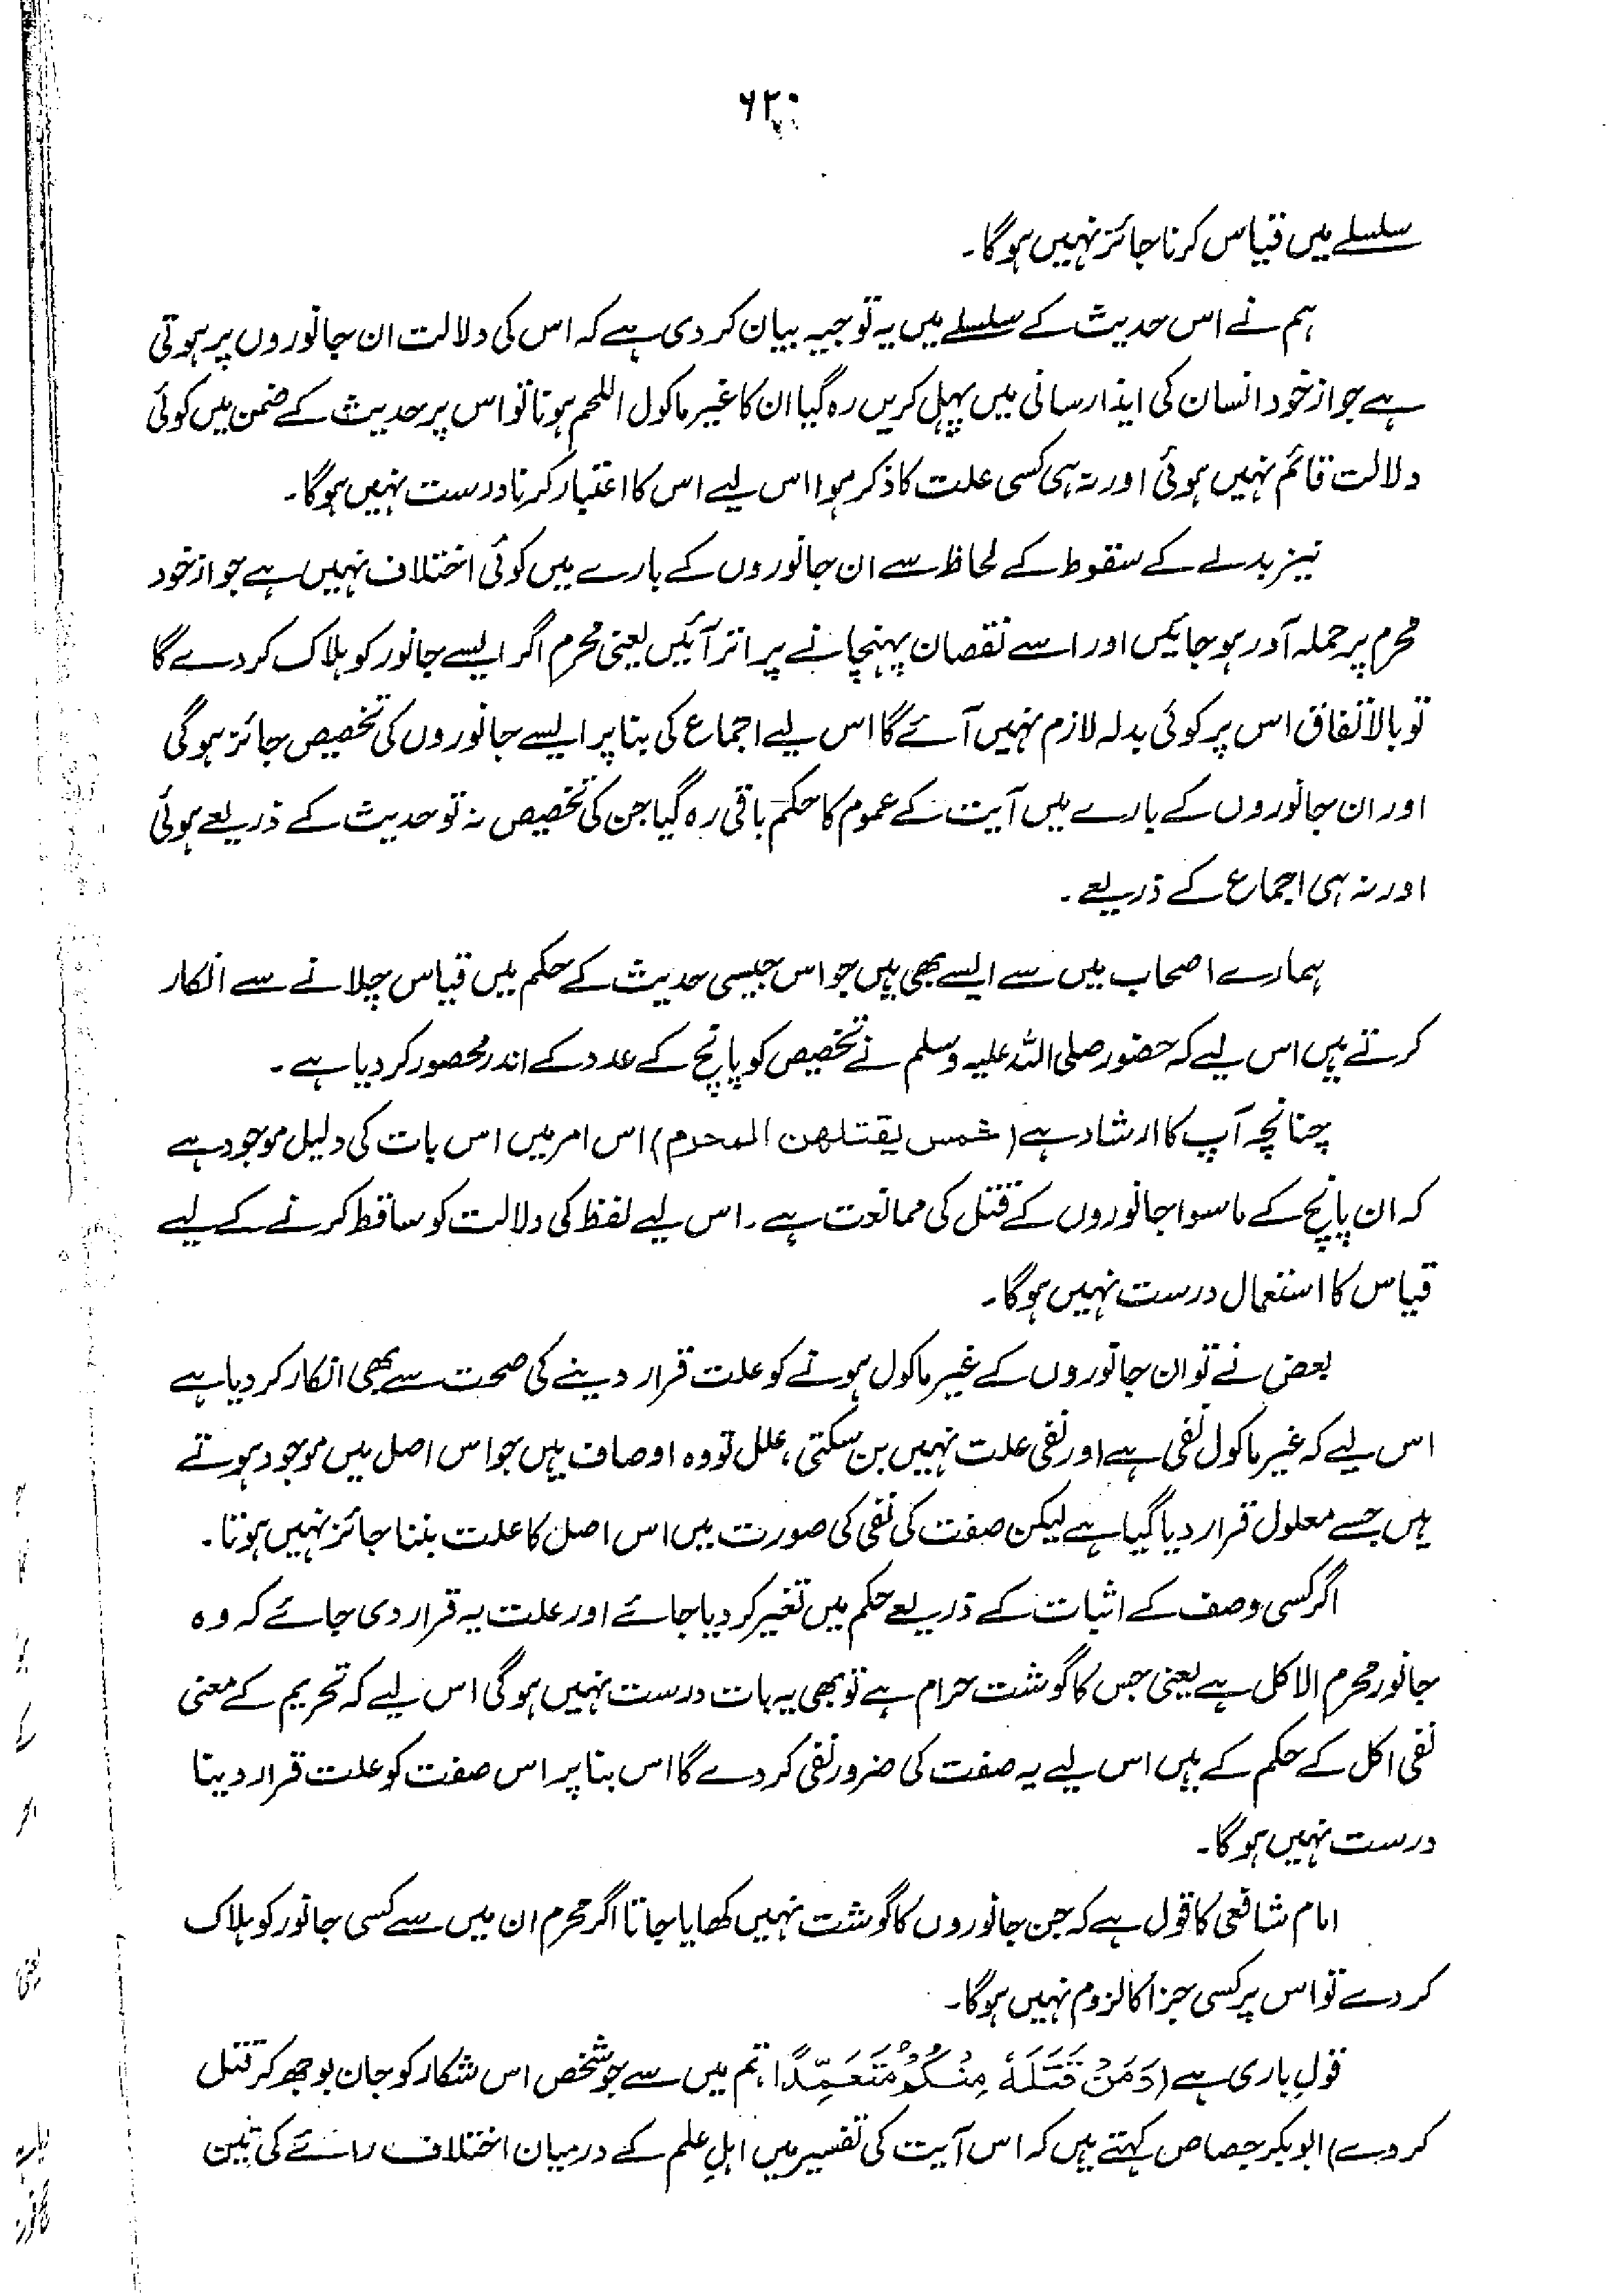 ۶۲۰
سلسلے میں قیاس کرنا جائز نہیں ہوگا۔
ہم نے اس حدیث کے سلسلے میں یہ توجیہ بیان کر دی ہے کہ اس کی دلالت ان جانوروں پر ہوتی
ہے جو از خود انسان کی ایذا رسانی میں پہل کریں رہ گیا ان کا غیر ماکول اللحم ہونا تو اس پر حدیث کے ضمن میں کوئی
دلالت قائم نہیں ہوئی اور نہ ہی کسی علت کا ذکر ہوا اس لیے اس کا اعتبار کرنا درست نہیں ہوگا۔
نیز بدلے کے سقوط کے لحاظ سے ان جانوروں کے بارے میں کوئی اختلاف نہیں ہے جو از خود
محرم پر حملہ آور ہو جائیں اور اسے نقصان پہنچانے پر اتر آئیں یعنی محرم اگر ایسے جانور کو ہلاک کر دے گا
تو بالاتفاق اس پر کوئی بدلہ لازم نہیں آئے گا اس لیے اجماع کی بنا پر ایسے جانوروں کی تخصیص جائز ہوگی
اور ان جانوروں کے بارے میں آیت کے عموم کا حکم باقی رہ گیا جن کی تخصیص نہ تو حدیث کے ذریعے ہوئی
اور نہ ہی اجماع کے ذریعے۔
ہمارے اصحاب میں سے ایسے بھی ہیں جو اس جیسی حدیث کے حکم میں قیاس چلانے سے انکار
کرتے ہیں اس لیے کہ حضور صلی اللہ علیہ وسلم نے تخصیص کو پانچ کے عدد کے اندر محصور کر دیا ہے۔
چنانچہ آپ کا ارشاد ہے (خمس يقتلهن المحرم) اس امر میں اس بات کی دلیل موجود ہے
کہ ان پانچ کے ماسوا جانوروں کے قتل کی ممانعت ہے۔ اس لیے لفظ کی دلالت کو ساقط کرنے کے لیے
قیاس کا استعمال درست نہیں ہوگا۔
بعض نے تو ان جانوروں کے غیر ماکول ہونے کو علت قرار دینے کی صحت سے بھی انکار کر دیا ہے
اس لیے کہ غیر ماکول نفی ہے اور نفی علت نہیں بن سکتی، علل تو وہ اوصاف ہیں جو اس اصل میں موجود ہوتے
ہیں جسے معلول قرار دیا گیا ہے لیکن صفت کی نفی کی صورت میں اس اصل کا علت بننا جائز نہیں ہوتا۔
اگر کسی وصف کے اثبات کے ذریعے حکم میں تغیر کر دیا جائے اور علت یہ قرار دی جائے کہ وہ
جانور محرم الاکل ہے یعنی جس کا گوشت حرام ہے تو بھی یہ بات درست نہیں ہوگی اس لیے کہ تحریم کے معنی
نفی اکل کے حکم کے ہیں اس لیے یہ صفت کی ضرور نفی کر دے گا اس بنا پر اس صفت کو علت قرار دینا
درست نہیں ہوگا۔
امام شافعی کا قول ہے کہ جن جانوروں کا گوشت نہیں کھایا جاتا اگر محرم ان میں سے کسی جانور کو ہلاک
کر دے تو اس پر کسی جزا کا لزوم نہیں ہوگا۔
قولِ باری ہے (وَمَنْ قَتَلَهٗ مِنْكُمْ مُتَعَمِّدًا، تم میں سے جو شخص اس شکار کو جان بوجھ کر قتل
کر دے) ابوبکر جصاص کہتے ہیں کہ اس آیت کی تفسیر میں اہلِ علم کے درمیان اختلاف رائے کی تین